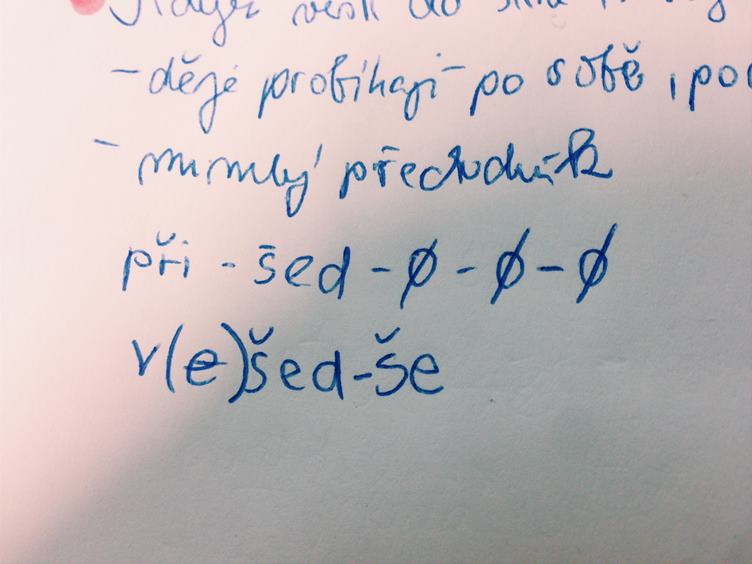 Když vešli do
- děje probíhají - po sobě, po
- minulý přechodník
při - šed - ø - ø - ø
v(e)šed-še